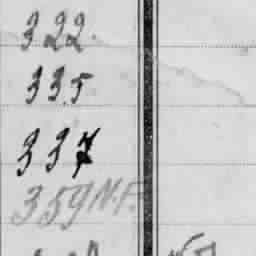 322.
335
337
359 N.F.